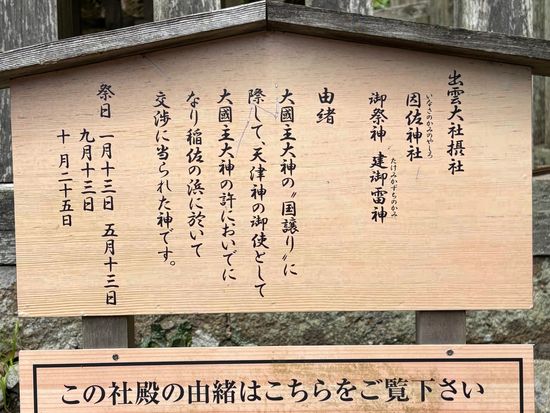 出雲大社摂社
いなさのかみのやしろ
因佐神社
たけみかづちのかみ
御祭神　建御雷神
由緒
大國主大神の〝国譲り〟に
際して、天津神の御使として
大國主大神の許においでに
なり稲佐の浜に於いて
交渉に当られた神です。
祭日　一月十三日　五月十三日
九月十三日
十月二十五日
この社殿の由緒はこちらをご覧下さい